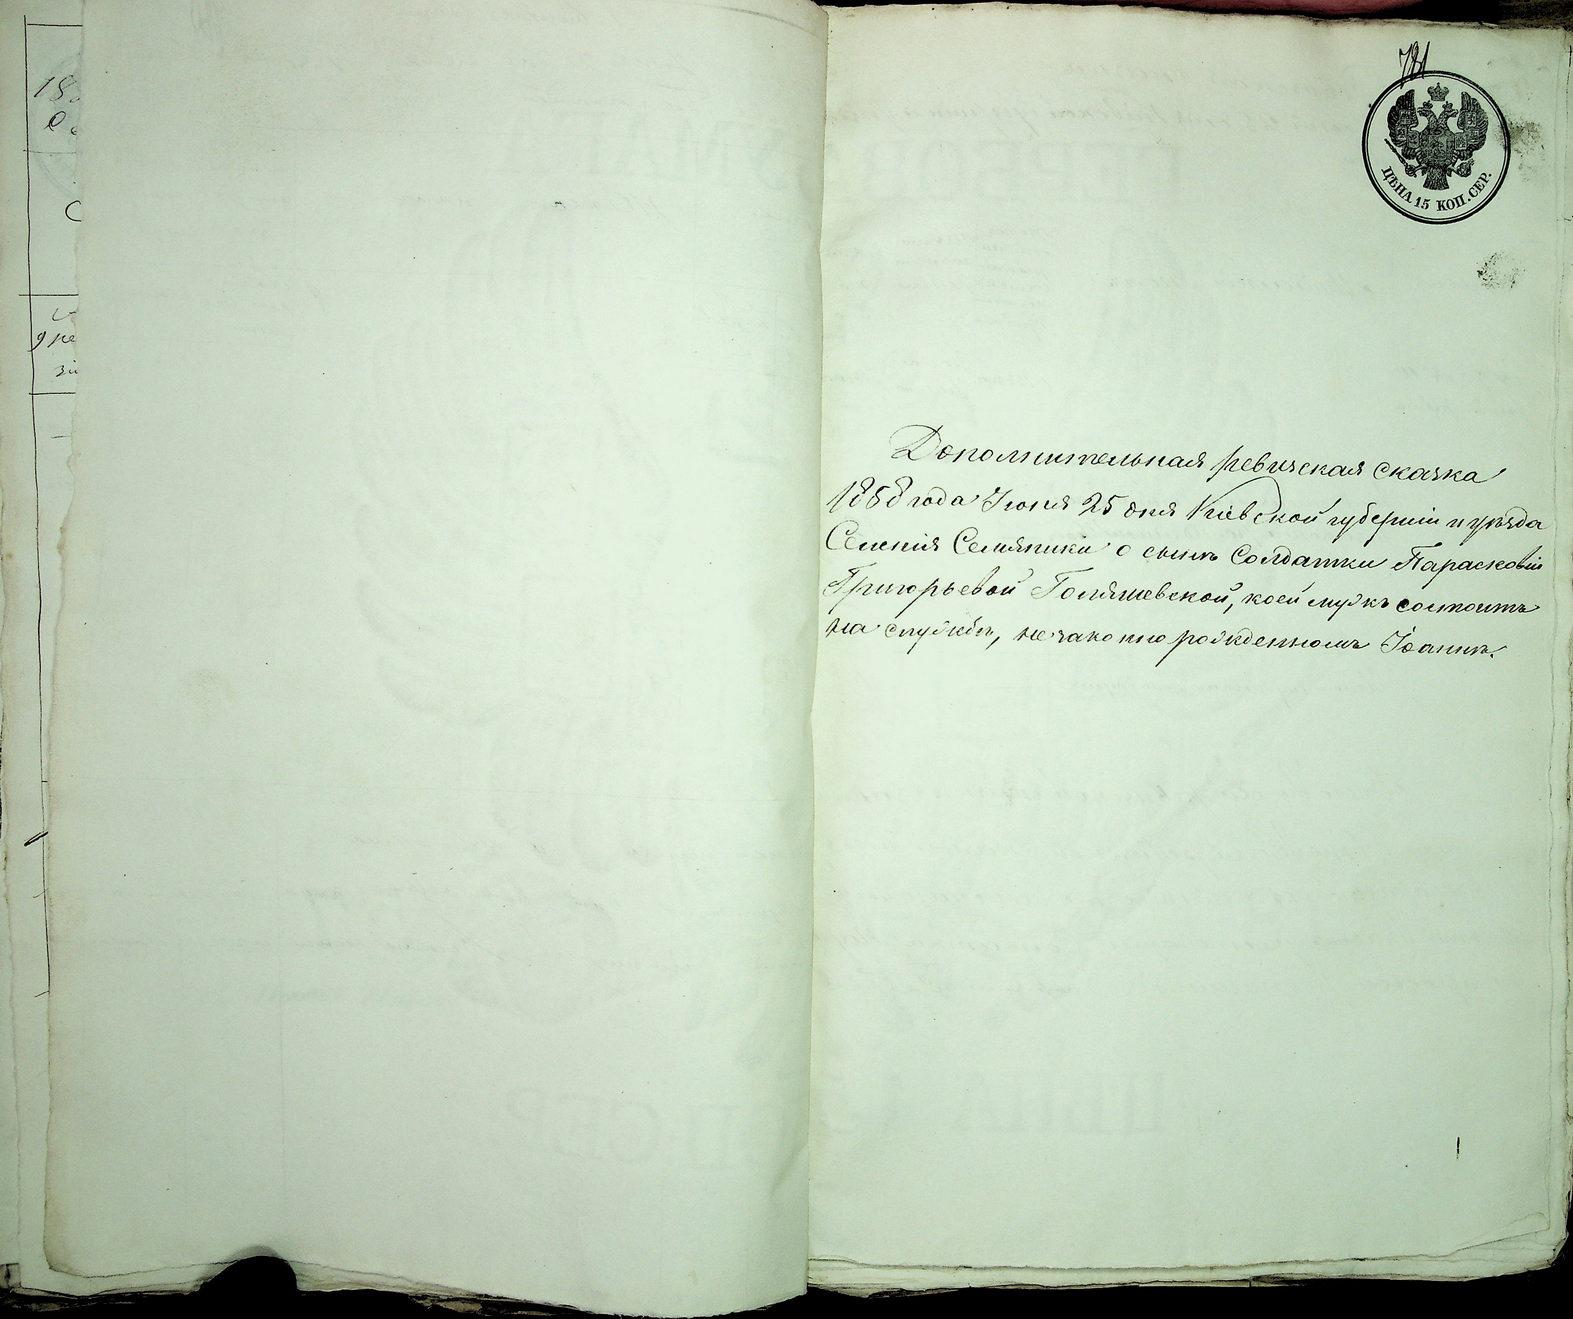 781
ЦѢНА 15 КОП. СЕР.
Дополнительная ревизская сказка
1858 года Июня 25 дня Кіевской губерніи и уѣзда
Селенія Семяники о сынѣ Солдатки Парасковіи
Григорьевой Голяшевской, коей мужъ состоитъ
на службѣ, незаконно рожденномъ Іоаннѣ.